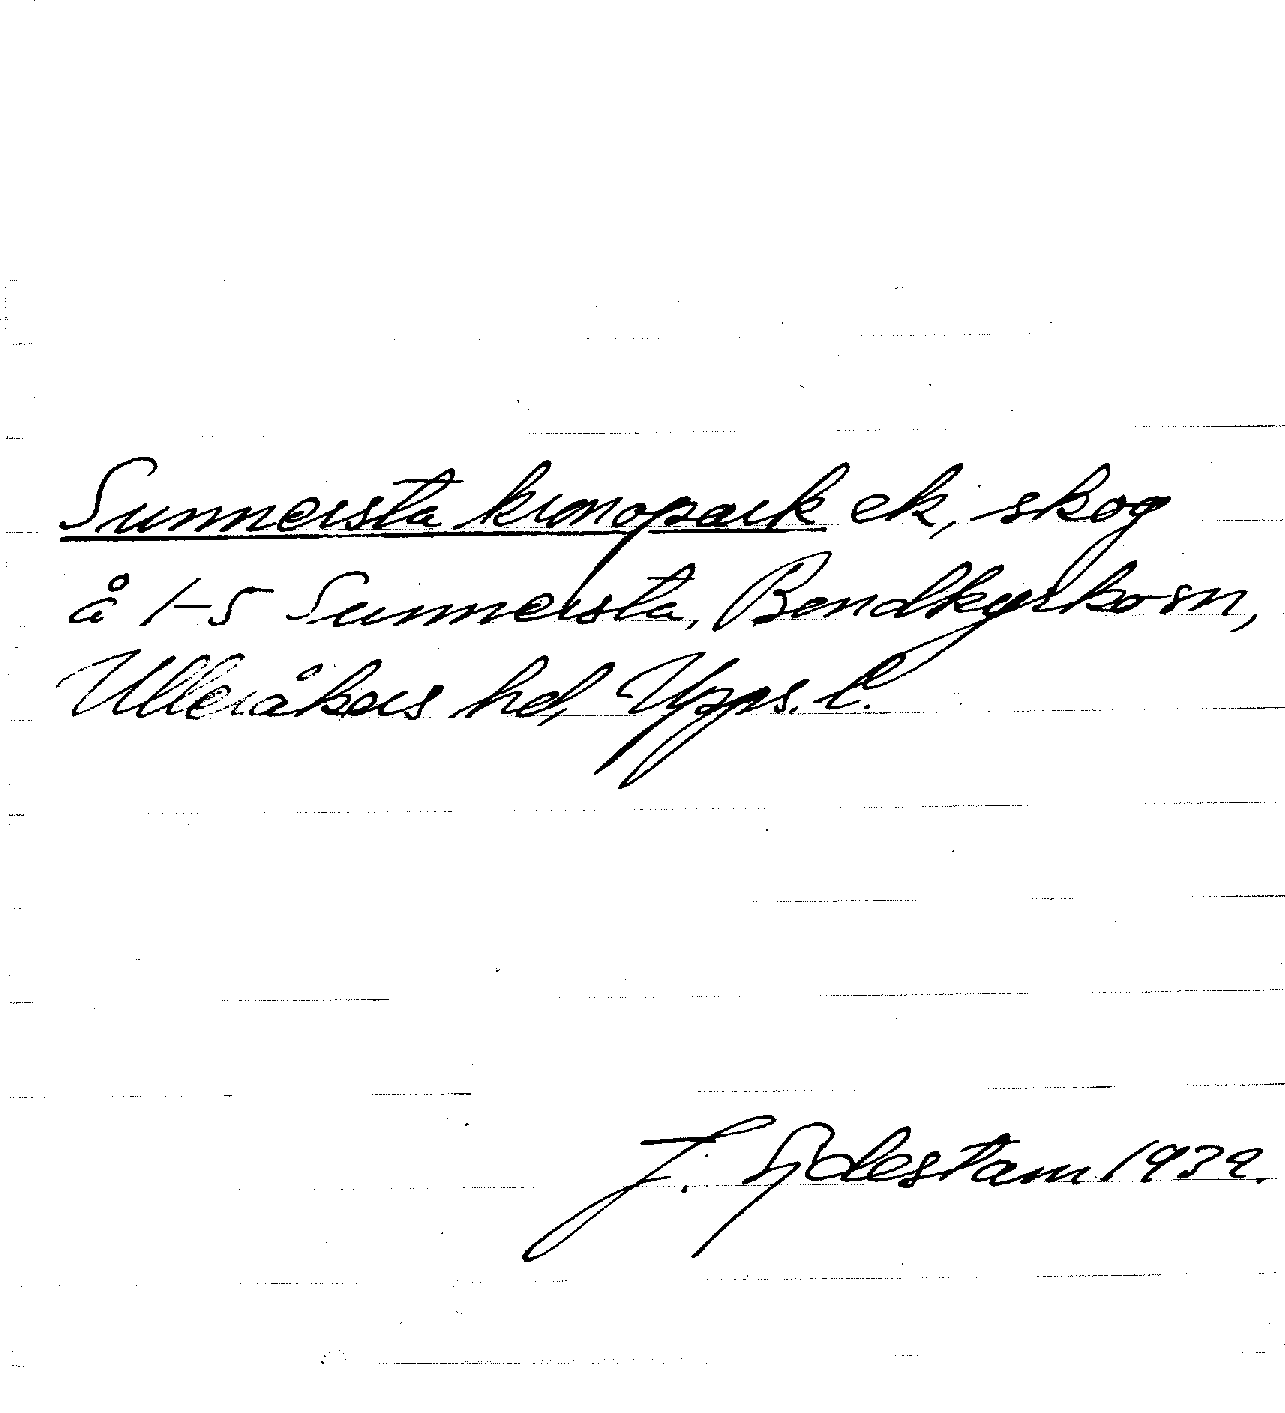 Sunnersta kronopark ek, skog
å 1-5 Sunnersta, Bondkyrko sn,
Ulleråkers hd, Upps. l.
J. Sjdestam 1939.